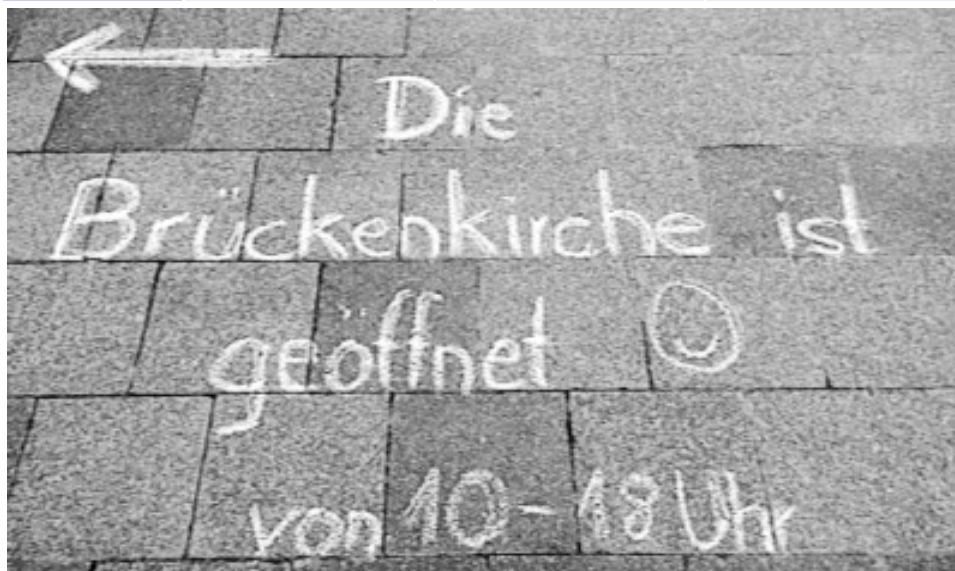 Die
Brückenkirche ist
geöffnet
von 10-18 Uhr